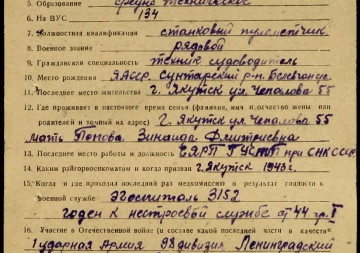 5. Образование средне техническое
6. На ВУС 134
7. Должностная квалификация станковый пулеметчик
8. Военное звание рядовой
9. Гражданская специальность техник судоводитель
10. Место рождения ЯАССР. Сунтарский р-н
11. Последнее место жительства г. Якутск ул. Чепалова 55
12. Где проживает в настоящее время семья (фамилия, имя и отчество жены или
родителей и точный их адрес) г. Якутск ул. Чепалова 55
мать Попова Зинаида Дмитриевна
13. Последнее место работы и должность при СНКССС
14. Каким райгорвоенкоматом и когда призван г. Якутск 194
15. Когда и где проходил последний раз медкомиссию и результат годности к
военной службе Эвгоспиталь 3152
годен к нестроевой службе от 44 гр. I
16. Участие в Отечественной войне (в составе какой последней части и качестве)
1 ударная Армия 98 дивизия Ленинградский